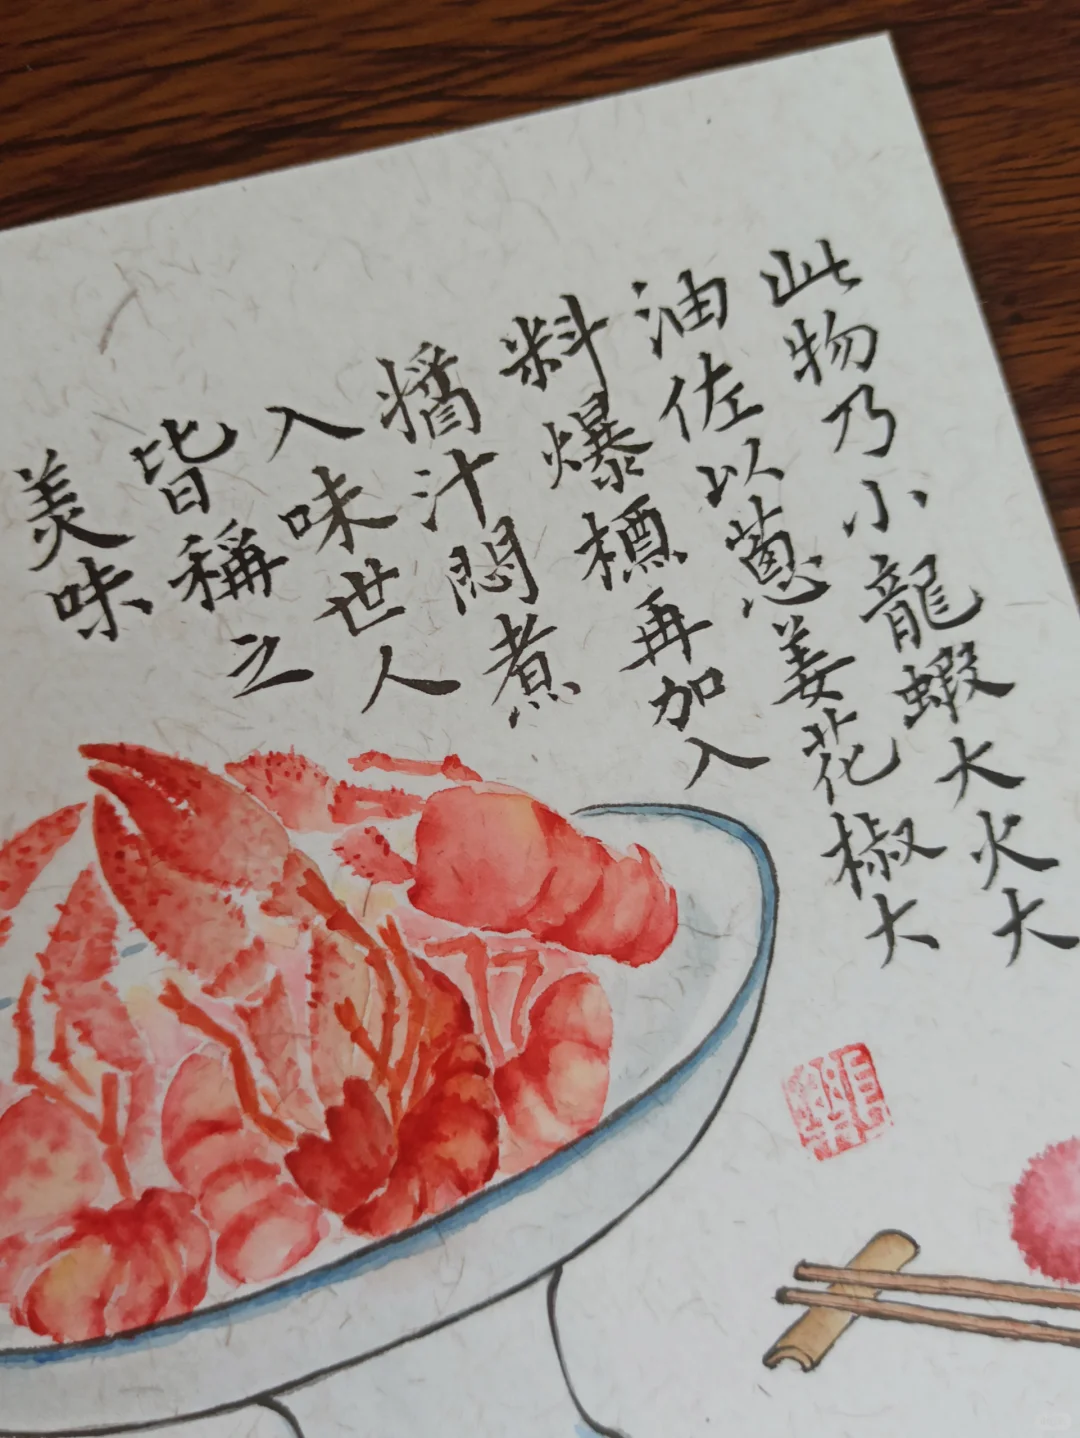 此物乃小龍蝦大火大
油佐以蔥姜花椒大
料爆標再加入
醬汁悶煮
入味世人
皆稱之
美味